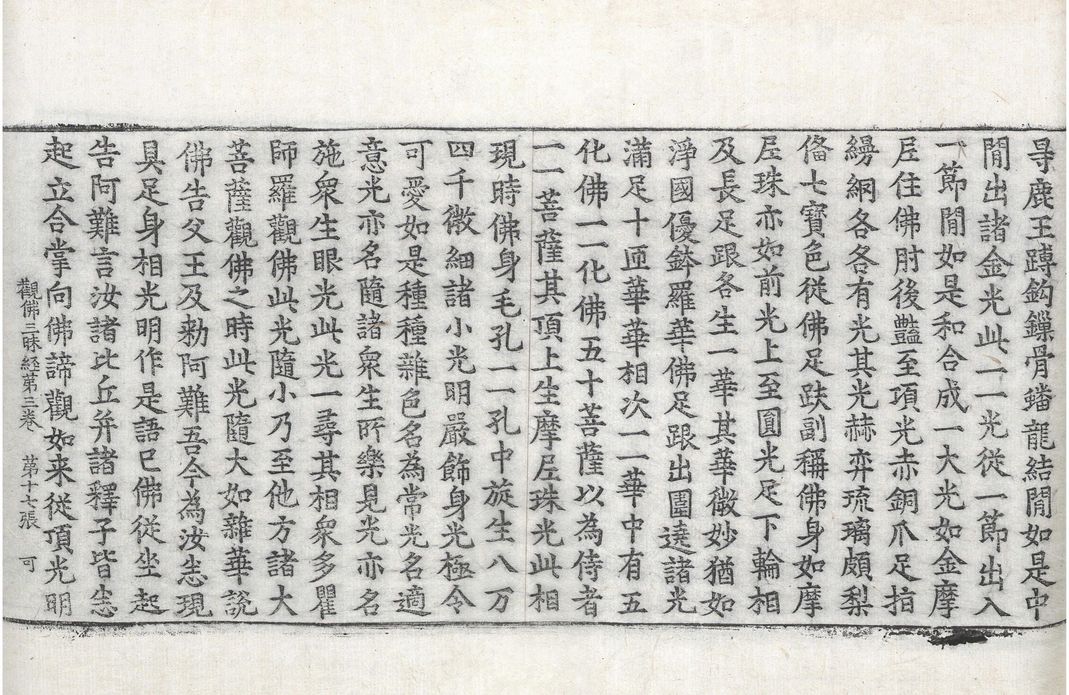 㝵鹿王蹲鈎鏁骨蟠龍結閒如是中
閒出諸金光此一一光從一節出入
一節閒如是和合成一大光如金摩
尼住佛肘後豔至項光赤銅爪足指
縵網各各有光其光赫弈琉璃頗梨
俻七寶色從佛足趺副稱佛身如摩
尼珠亦如前光上至圓光足下輪相
及長足跟各生一華其華微妙猶如
淨國優鉢羅華佛足跟出圍遶諸光
滿足十匝華華相次一一華中有五
化佛一一化佛五十菩薩以為侍者
一一菩薩其頂上生摩尼珠光此相
現時佛身毛孔一一孔中旋生八万
四千微細諸小光明嚴飾身光極令
可愛如是種種雜色名為常光名適
意光亦名隨諸衆生所樂見光亦名
施衆生眼光此光一尋其相衆多瞿
師羅觀佛此光隨小乃至他方諸大
菩薩觀佛之時此光隨大如雜華説
佛告父王及勑阿難吾今為汝悉現
具足身相光明作是語已佛從坐起
告阿難言汝諸比丘并諸釋子皆悉
起立合掌向佛諦觀如来從項光明
觀佛三昧経第三卷 第十七張 可